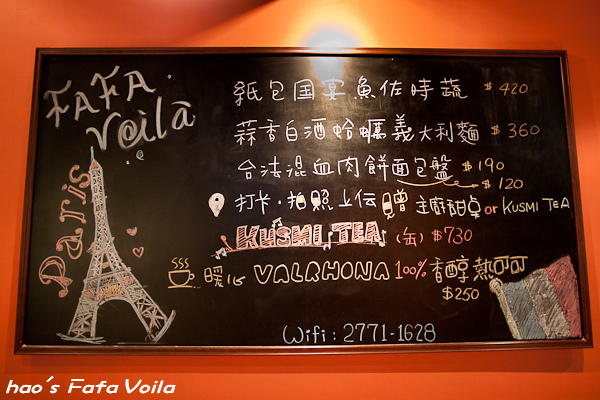 FAFA
Voilà
Paris
紙包国宴魚佐時蔬 $420
蒜香白酒蛤蠣義大利麵 $360
合法混血肉餅面包盤 $190
$120
打卡·拍照上伝贈主廚甜点 or KUSMI TEA
KUSMI TEA (缶) $730
暖心 VALRHONA 100% 香醇熱可可
$250
Wifi : 2771-1628
hao's Fafa Voila